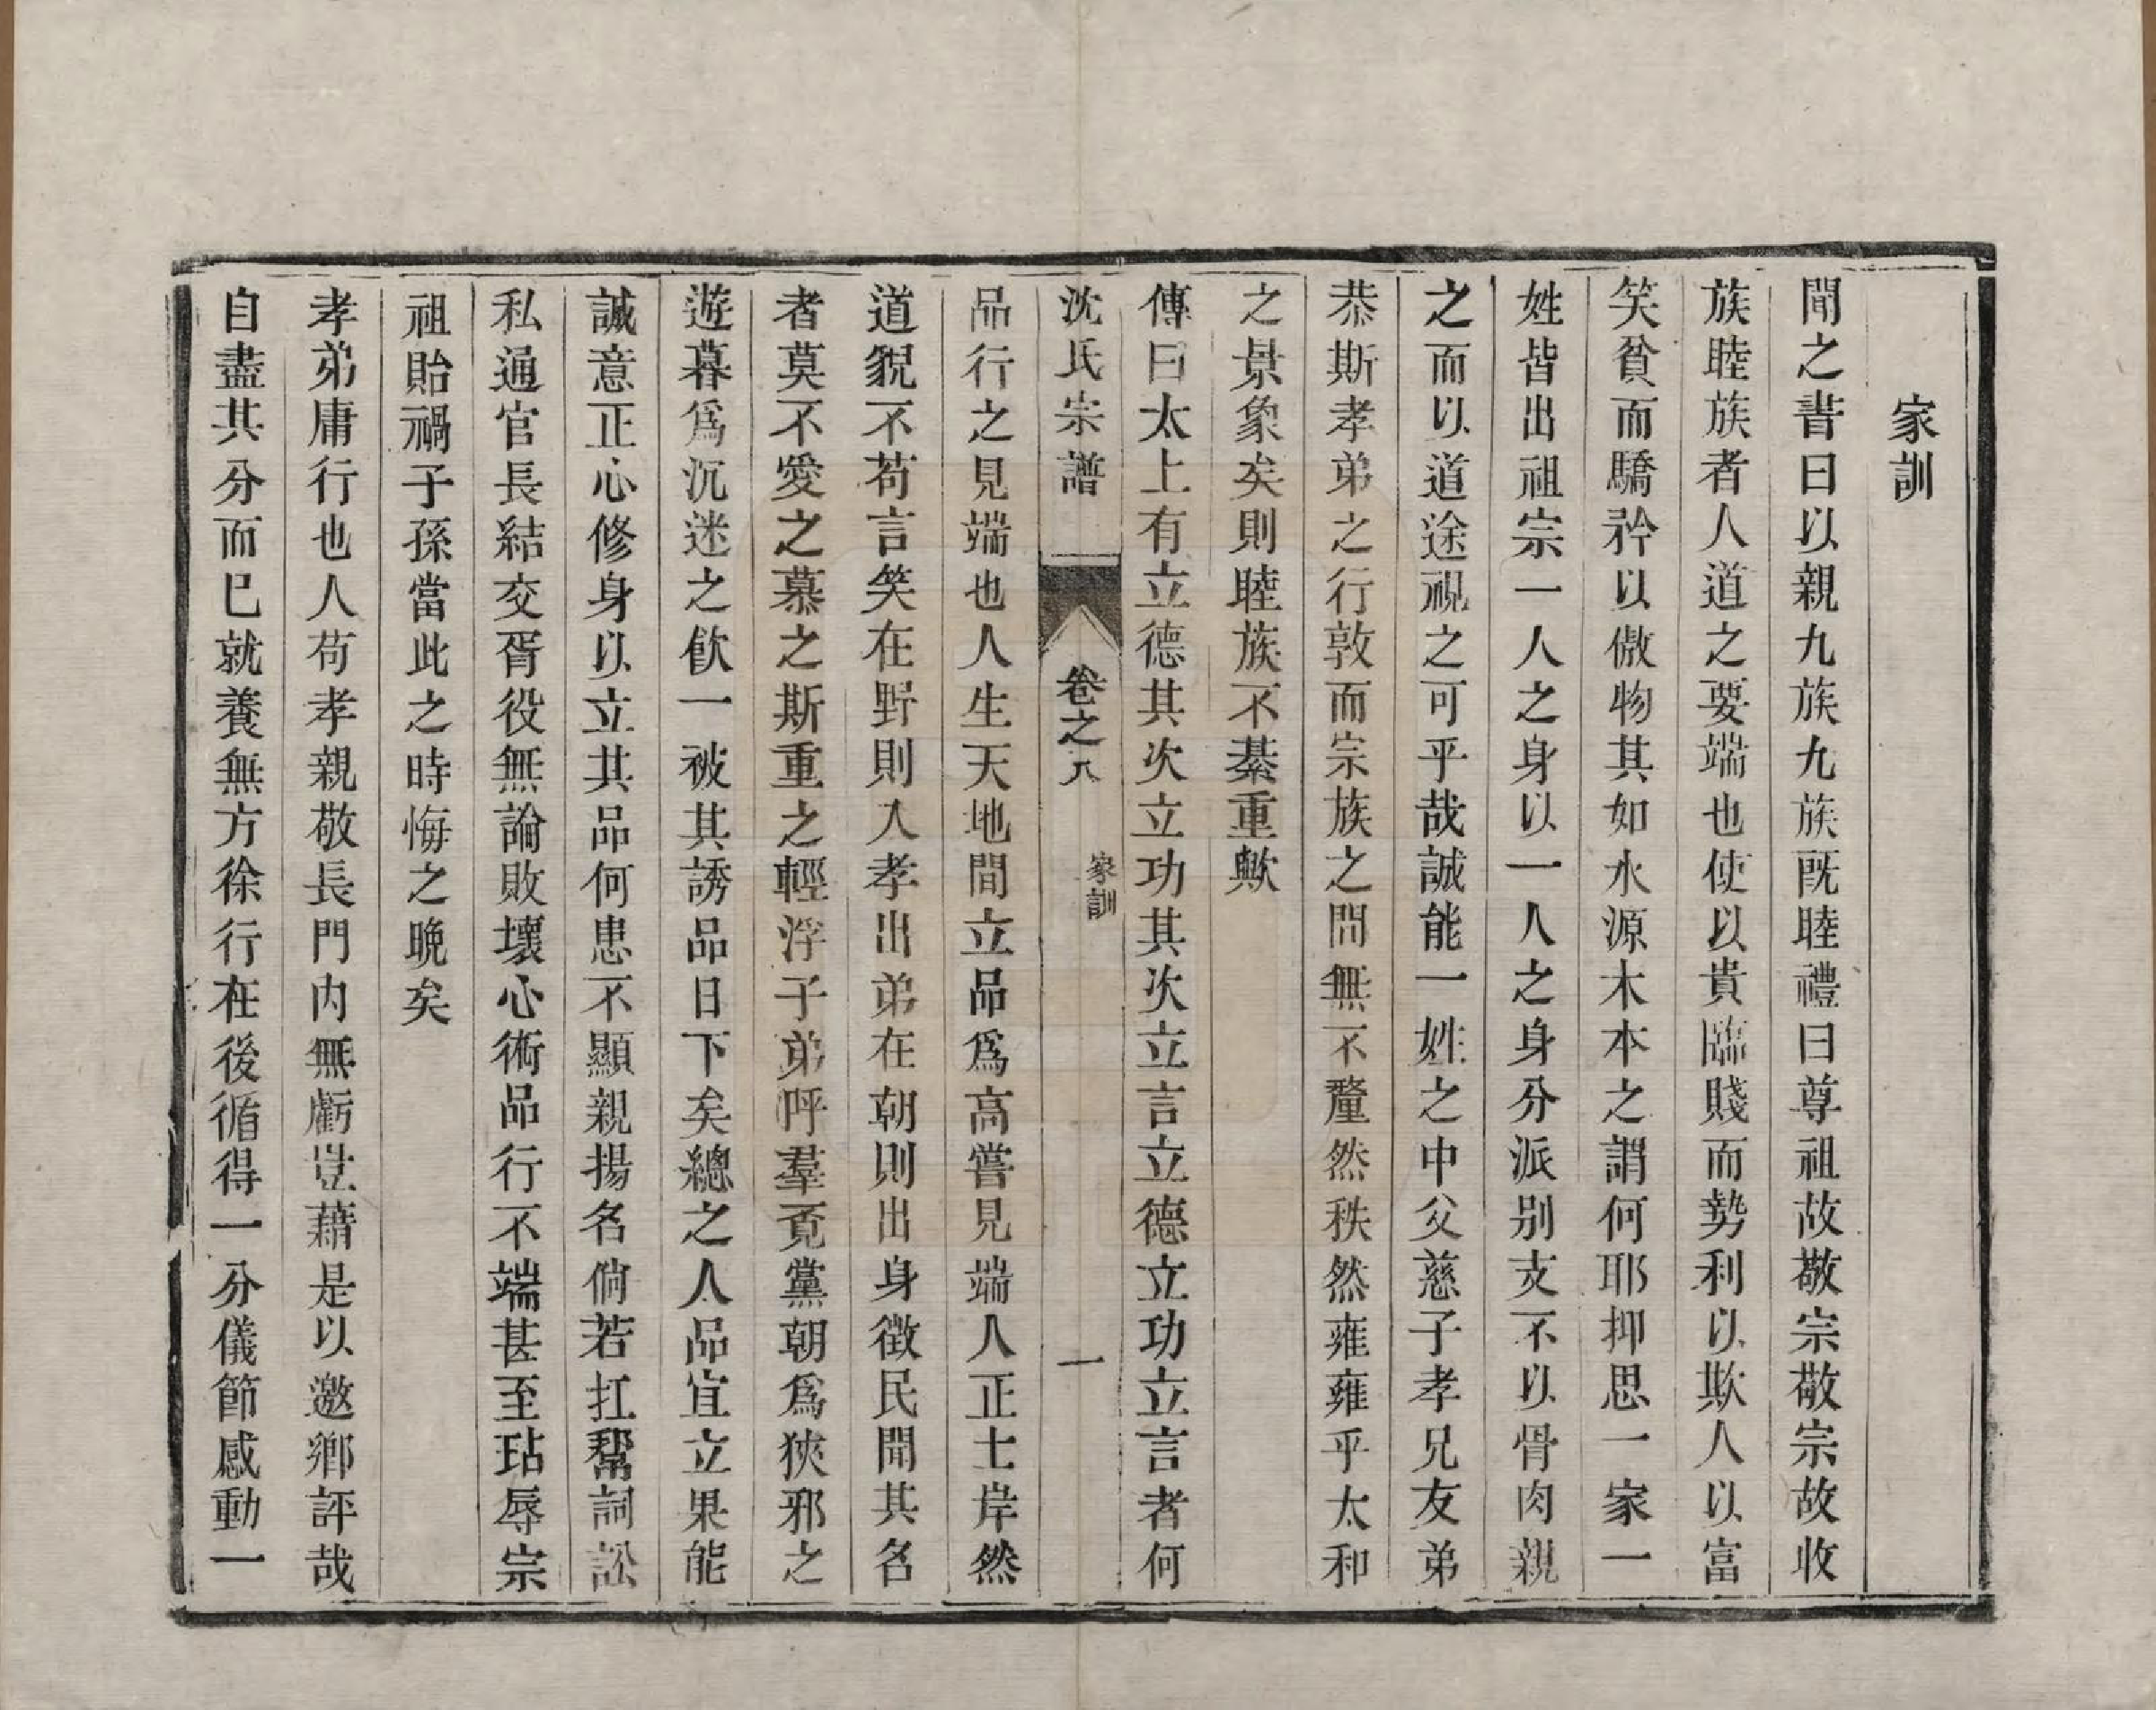 家訓
聞之書曰以親九族九族既睦禮曰尊祖故敬宗敬宗故收
族睦族者人道之要端也使以貴臨賤而勢利以欺人以富
笑貧而驕矜以傲物其如水源木本之謂何耶抑思一家一
姓皆出祖宗一人之身以一人之身分派别支不以骨肉親
之而以道途視之可乎哉誠能一姓之中父慈子孝兄友弟
恭斯孝弟之行敦而宗族之間無不釐然秩然雍雍乎太和
之景象矣則睦族不綦重歟
傳曰太上有立德其次立功其次立言立德立功立言者何
沈氏宗譜
卷之八
家訓
一
品行之見端也人生天地間立品爲高嘗見端人正士岸然
道貌不苟言笑在野則入孝出弟在朝則出身徵民聞其名
者莫不愛之慕之斯重之輕浮子弟呼羣覓黨朝爲狹邪之
遊暮爲沉迷之飲一被其誘品日下矣總之人品宜立果能
誠意正心修身以立其品何患不顯親揚名倘若扛幫詞訟
私通官長結交胥役無論敗壞心術品行不端甚至玷辱宗
祖貽禍子孫當此之時悔之晚矣
孝弟庸行也人苟孝親敬長門内無虧豈藉是以邀鄉評哉
自盡其分而已就養無方徐行在後循得一分儀節感動一